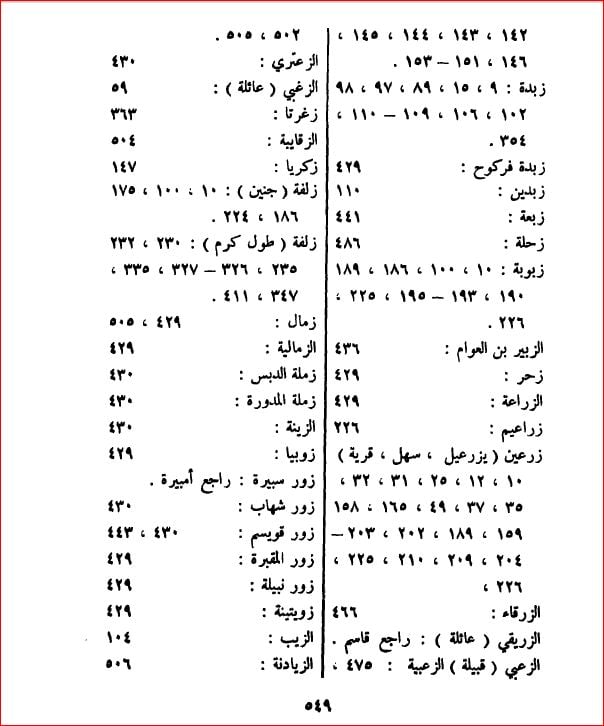 ١٤٢ ، ١٤٣ ، ١٤٤ ، ١٤٥ ،
١٤٦ ، ١٥١ – ١٥٣ .
زبدة : ٩ ، ١٥ ، ٨٩ ، ٩٧ ، ٩٨
١٠٢ ، ١٠٦ ، ١٠٩ – ١١٠ ،
٣٥٤ .
زبدة فركوح : ٤٢٩
زبدين : ١١٠
زبعة : ٤٤١
زحلة : ٤٨٦
زبوبة : ١٠ ، ١٠٠ ، ١٨٦ ، ١٨٩
١٩٠ ، ١٩٣ – ١٩٥ ، ٢٢٥ ،
٢٢٦ .
الزبير بن العوام : ٤٣٦
زحر : ٤٢٩
الزراعة : ٤٢٩
زراعيم : ٢٢٦
زرعين ( يزرعيل ، سهل ، قرية )
١٠ ، ١٢ ، ٢٥ ، ٣١ ، ٣٢ ،
٣٥ ، ٣٧ ، ٤٩ ، ١٦٥ ، ١٥٨
١٥٩ ، ١٨٩ ، ٢٠٢ ، ٢٠٣ –
٢٠٤ ، ٢٠٩ ، ٢١٠ ، ٢٢٥ ،
٢٢٦ ،
الزرقاء : ٤٦٦
الزريقي ( عائلة ) : راجع قاسم .
الزعبي ( قبيلة ) الزعبية : ٤٧٥ ،
٥٠٢ ، ٥٠٥ .
الزعتري : ٤٣٠
الزغبي ( عائلة ) : ٥٩
زغرتا : ٣٦٣
الزقايبة : ٥٠٤
زكريا : ١٤٧
زلفة ( جنين ) : ١٠ ، ١٠٠ ، ١٧٥
١٨٦ ، ٢٢٤ .
زلفة ( طول كرم ) : ٢٣٠ ، ٢٣٢
٢٣٥ ، ٣٢٦ – ٣٢٧ ، ٣٣٥ ،
٣٤٧ ، ٤١١ .
زمال : ٤٢٩ ، ٥٠٥
الزمالية : ٤٢٩
زملة الدبس : ٤٣٠
زملة المدورة : ٤٣٠
الزينة : ٤٣٠
زوبيا : ٤٢٩
زور سبيرة : راجع أمبيرة .
زور شهاب : ٤٣٠
زور قويسم : ٤٣٠ ، ٤٤٣
زور المقبرة : ٤٢٩
زور نبيلة : ٤٢٩
زويتينة : ٤٢٩
الزيب : ١٠٤
الزيادنة : ٥٠٦
٥٤٩